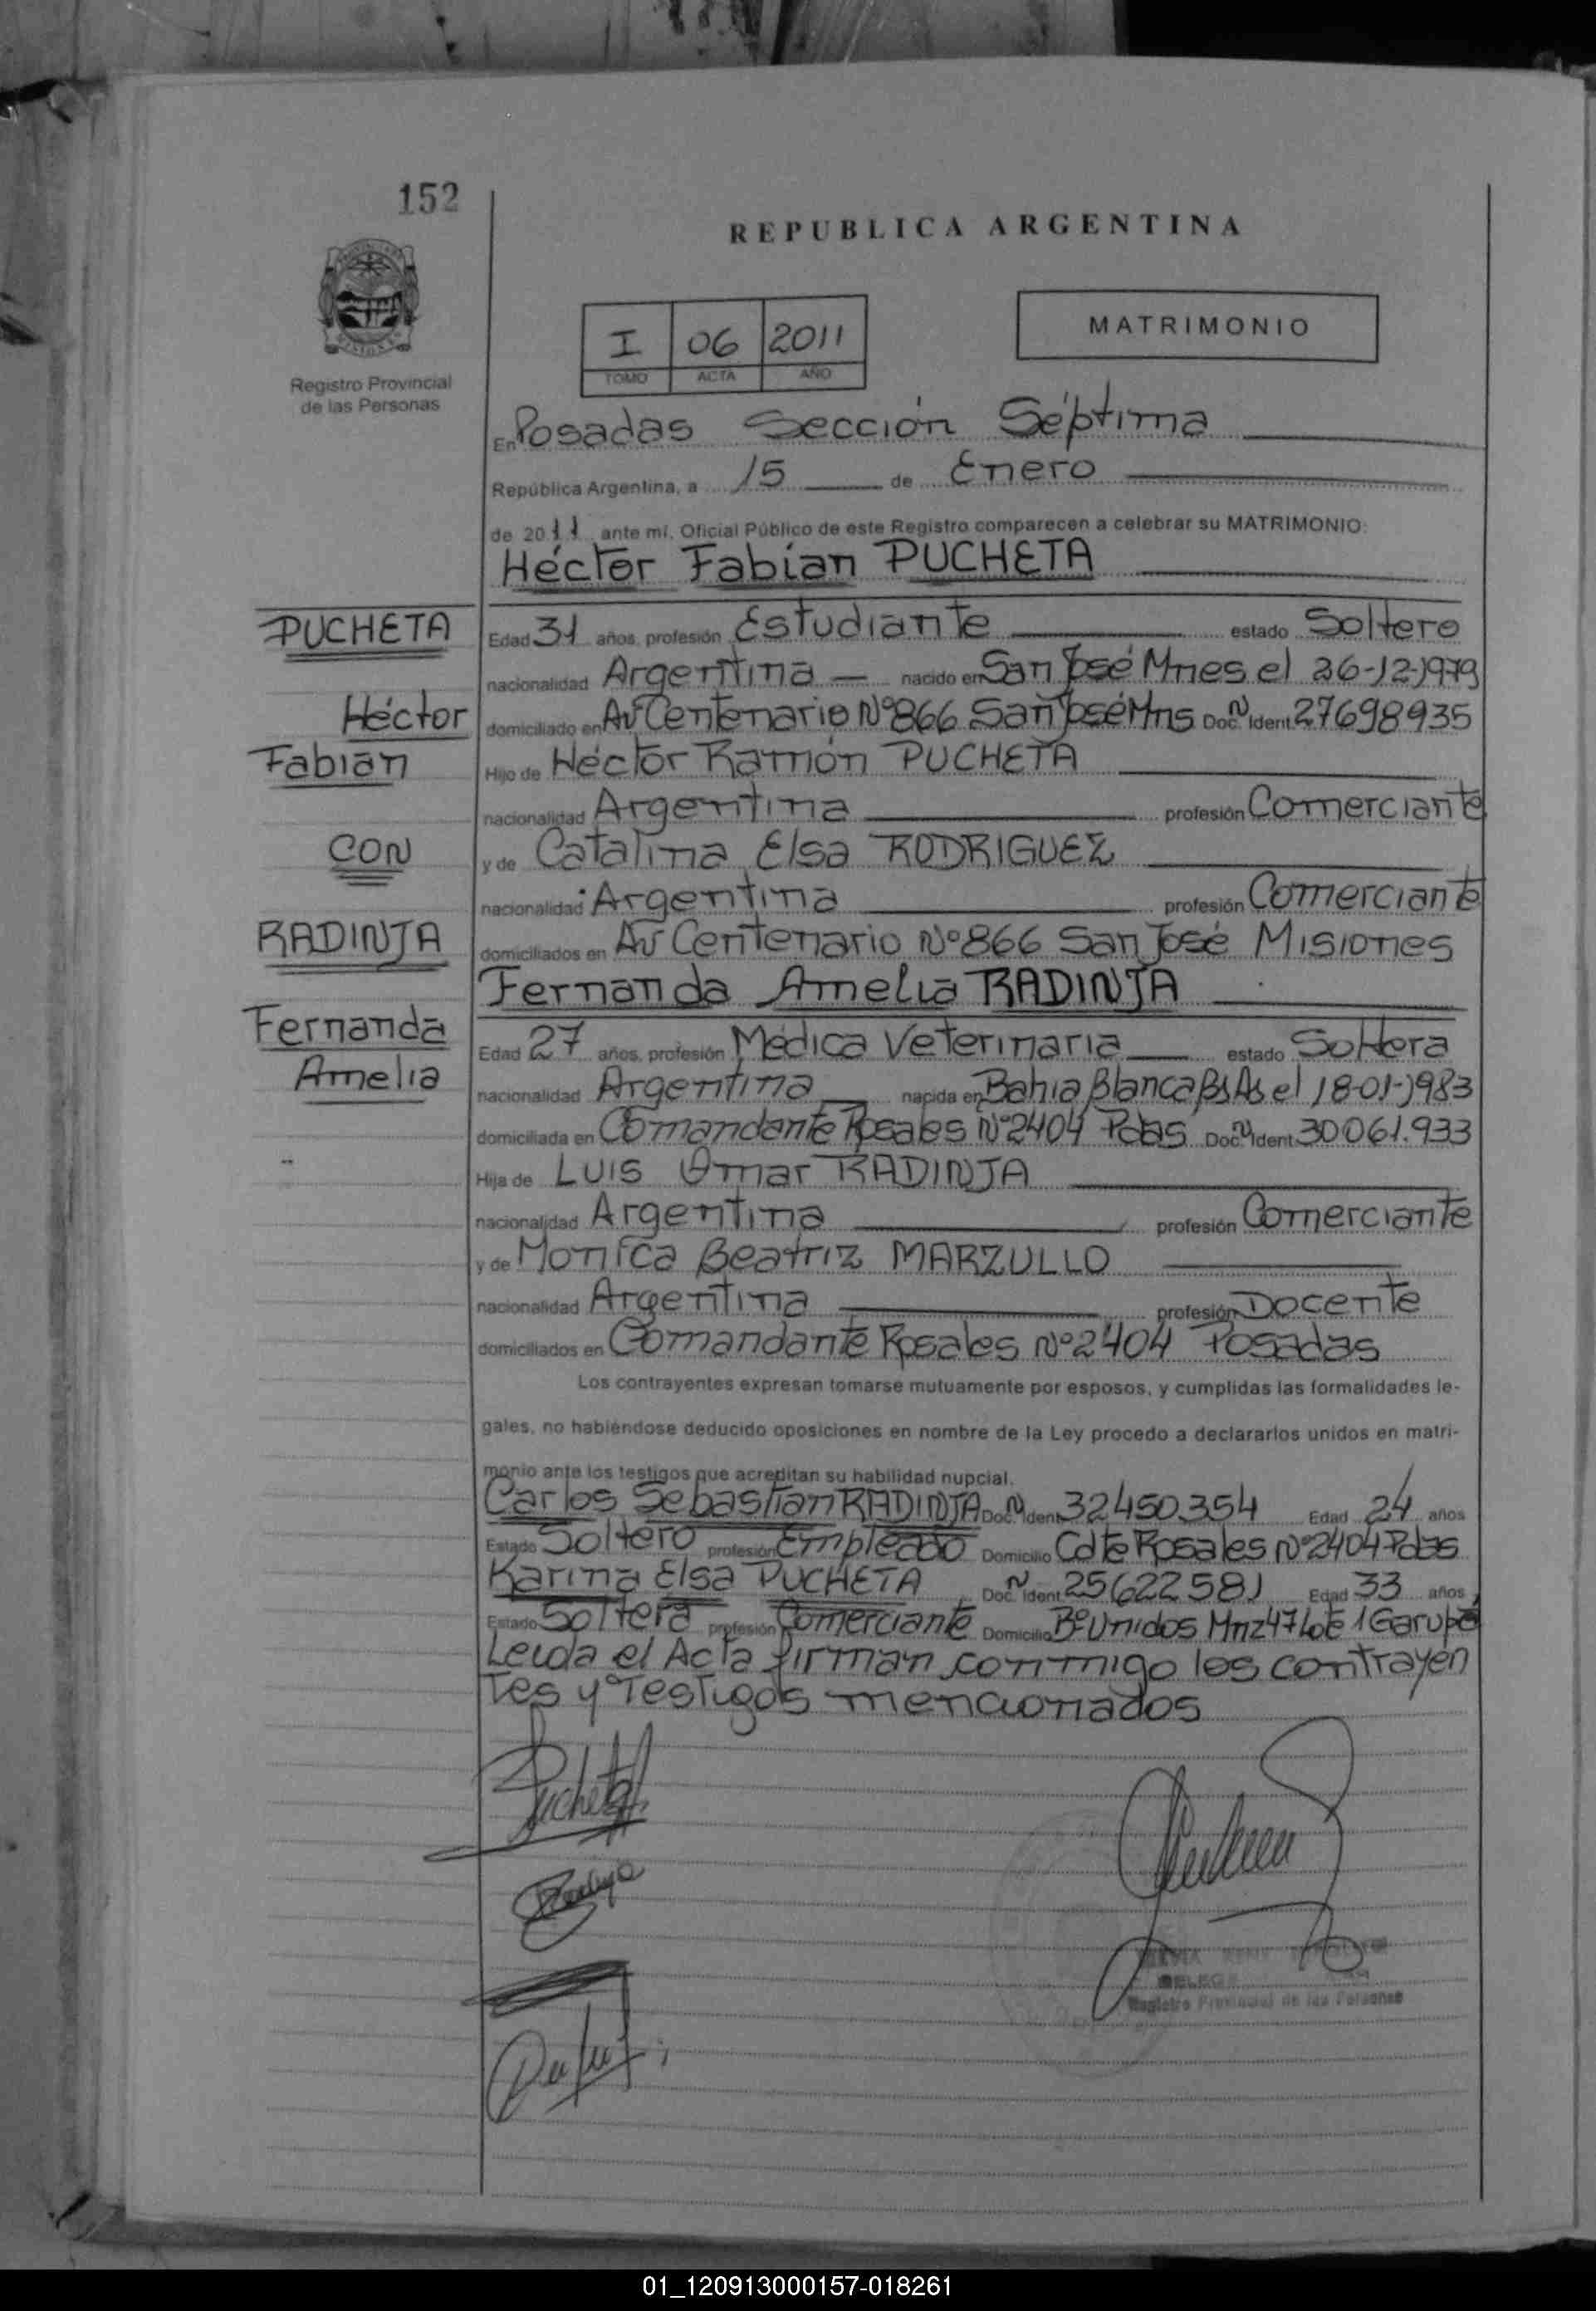 152
REPUBLICA ARGENTINA
Registro Provincial
de las Personas
I 06 2011
TOMO ACTA AÑO
MATRIMONIO
En Posadas Sección Séptima
República Argentina, a 15 de Enero
de 2011 ante mí, Oficial Público de este Registro comparecen a celebrar su MATRIMONIO:
Héctor Fabian PUCHETA
PUCHETA
Héctor
Fabian
CON
RADINJA
Fernanda
Amelia
Edad 31 años, profesión Estudiante estado Soltero
nacionalidad Argentina nacido en San José Mnes el 26-12-1979
domiciliado en Av Centenario Nº 866 San José Mns Doc. N Ident. 27698935
Hijo de Héctor Ramón PUCHETA
nacionalidad Argentina profesión Comerciante
y de Catalina Elsa RODRIGUEZ
nacionalidad Argentina profesión Comerciante
domiciliados en Av Centenario Nº 866 San José Misiones
Fernanda Amelia RADINJA
Edad 27 años, profesión Médica Veterinaria estado Soltera
nacionalidad Argentina nacida en Bahia Blanca Bs As el 18-01-1983
domiciliada en Comandante Rosales Nº 2404 Pdas Doc. N Ident. 30061.933
Hija de Luis Omar RADINJA
nacionalidad Argentina profesión Comerciante
y de Monica Beatriz MARZULLO
nacionalidad Argentina profesión Docente
domiciliados en Comandante Rosales Nº 2404 Posadas
Los contrayentes expresan tomarse mutuamente por esposos, y cumplidas las formalidades le-
gales, no habiéndose deducido oposiciones en nombre de la Ley procedo a declararlos unidos en matri-
monio ante los testigos que acreditan su habilidad nupcial.
Carlos Sebastian RADINJA Doc. N Ident. 32450.354 Edad 24 años
Estado Soltero profesión Empleado Domicilio Cdte Rosales Nº 2404 Pdas
Karina Elsa PUCHETA Doc. N Ident. 25622581 Edad 33 años
Estado Soltera profesión Comerciante Domicilio Bº Unidos Mnz 47 Lote 1 Garupá
Leida el Acta firman conmigo los contrayen
tes y Testigos mencionados
Pucheta
Registro Provincial de las Personas
01_120913000157-018261